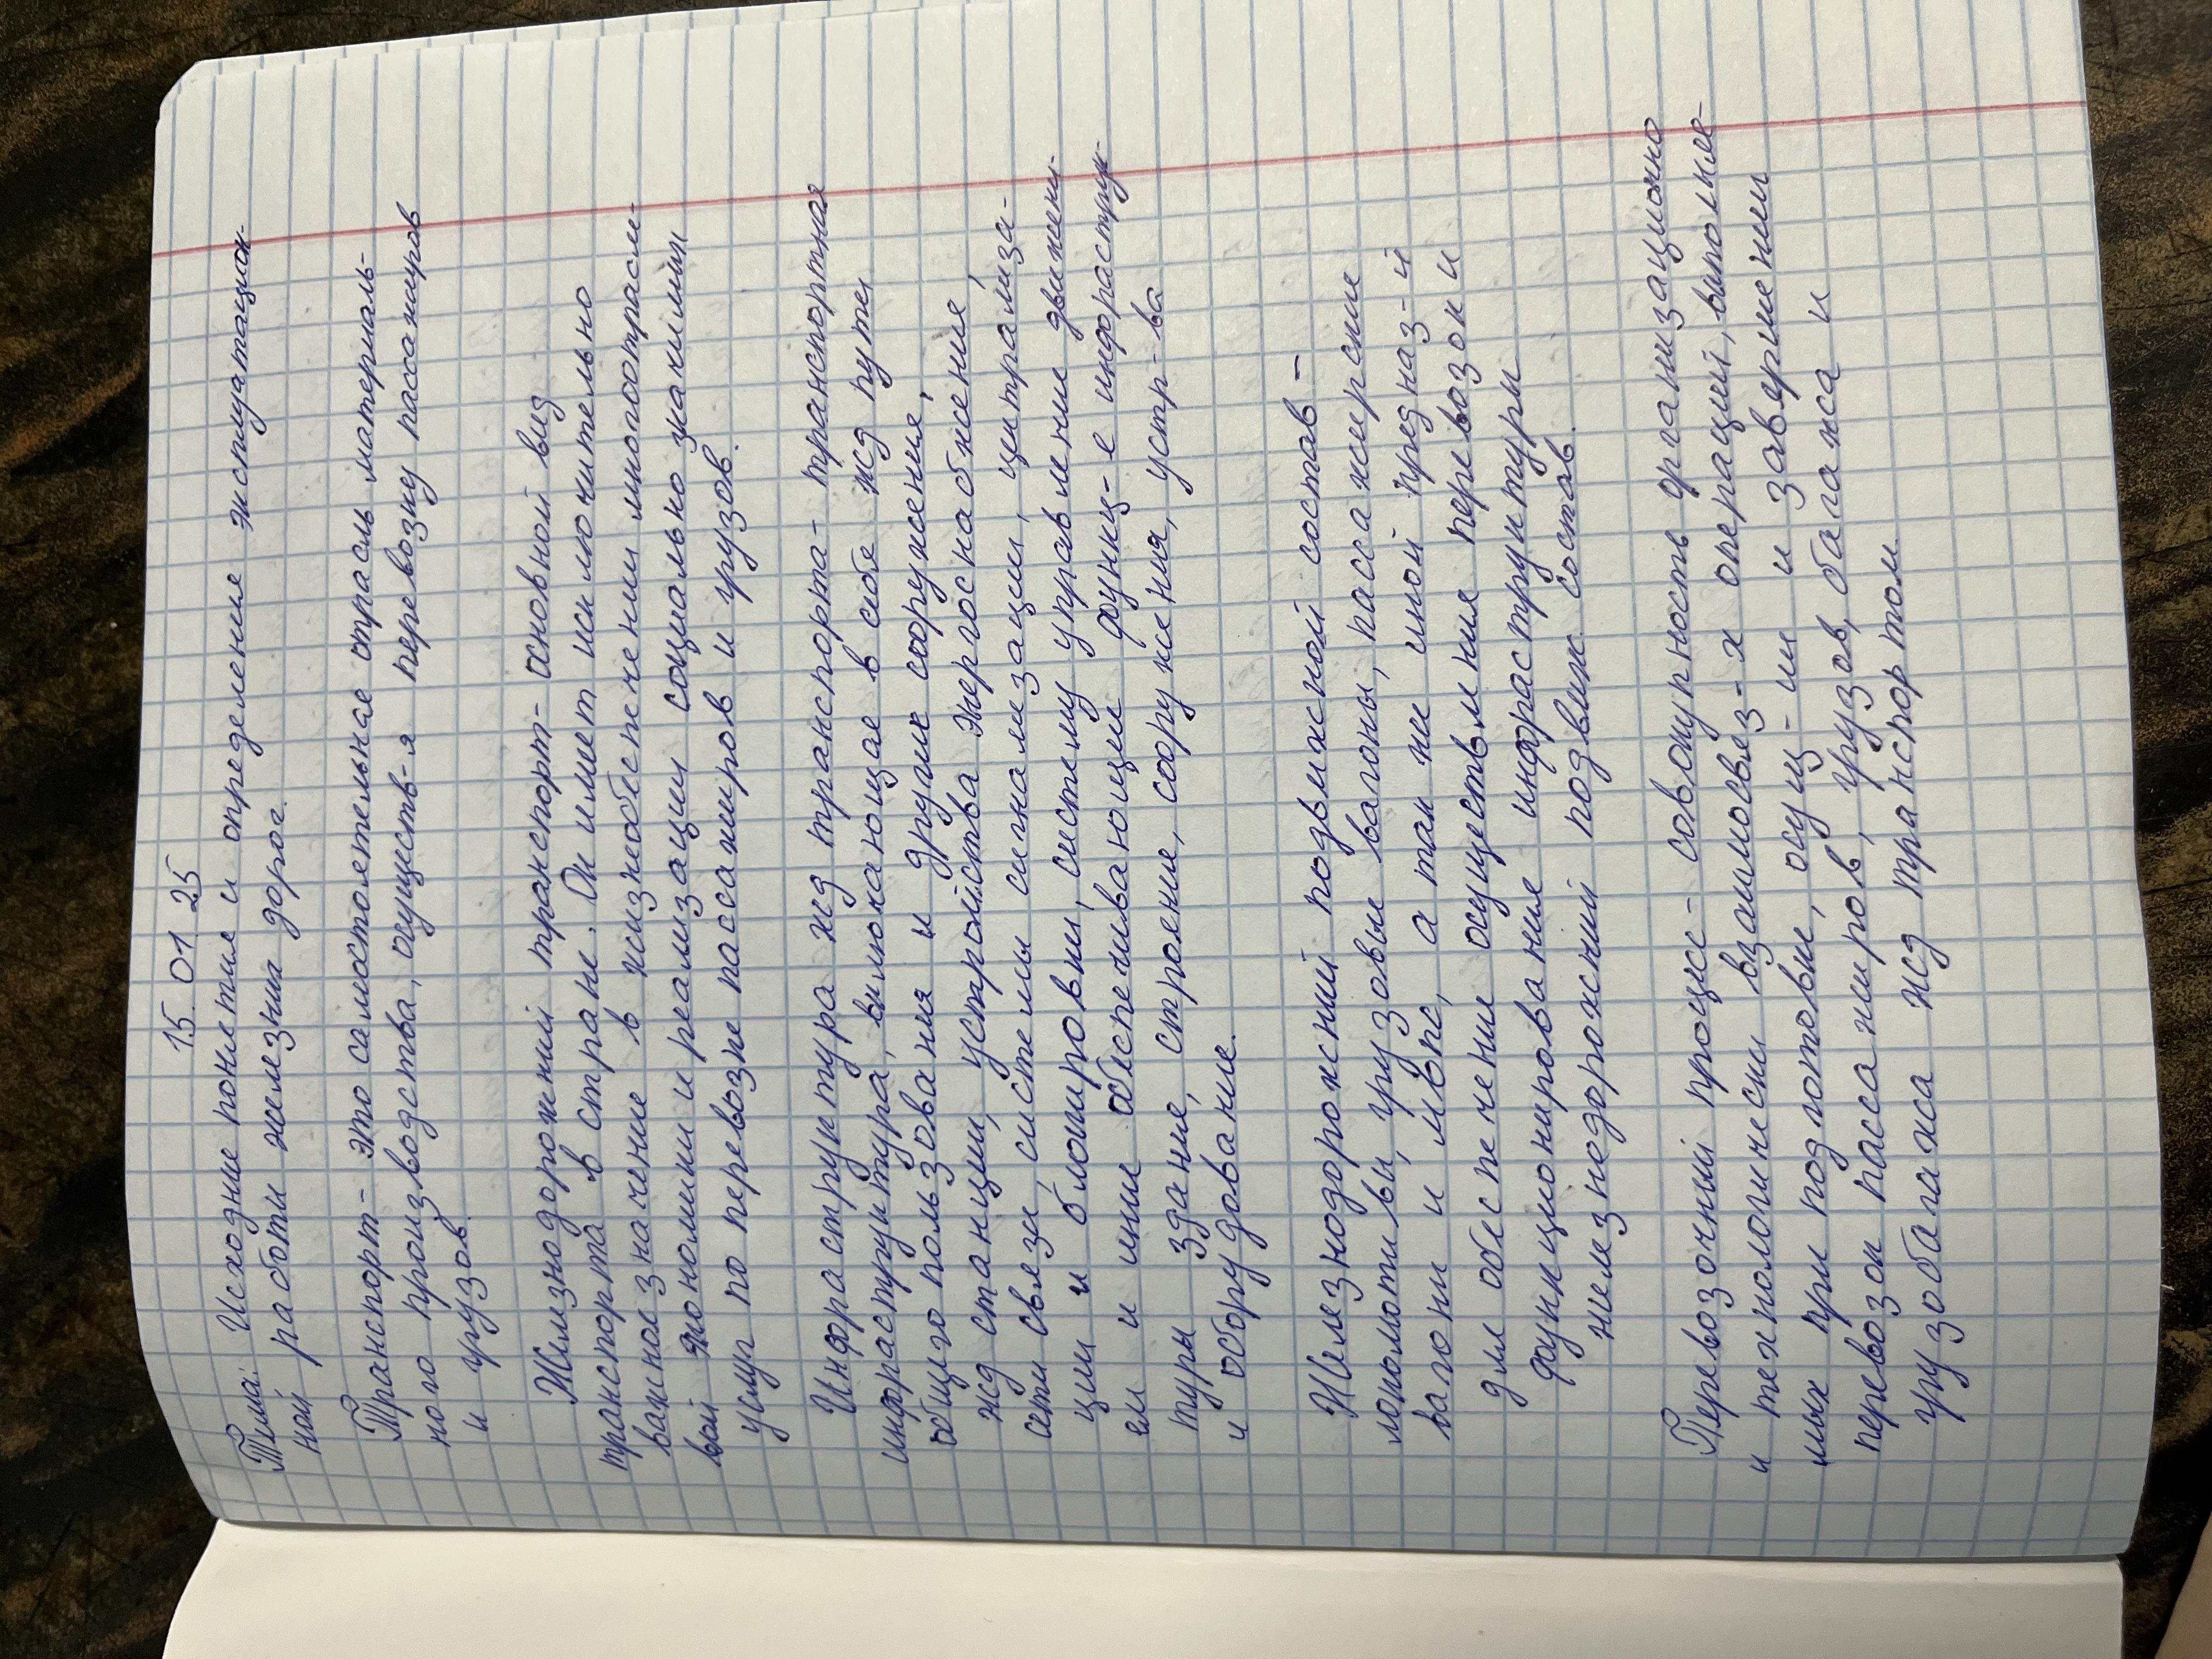 15.01.25
Тема: Исходные понятие и определение эксплуатацион-
ной работы железных дорог.
Транспорт - это самостоятельная отрасль материаль-
ного производства, осуществ-я перевозку пассажиров
и грузов.
Железнодорожный транспорт - основной вид
транспорта в стране. Он имеет исключительно
важное значение в жизнеобеспечении многоотрасле-
вой экономики и реализации социально значимых
услуг по перевозке пассажиров и грузов.
Инфраструктура жд транспорта - транспортная
инфраструктура, включающая в себя жд пути
общего пользования и другие сооружения,
жд станции, устройства энергоснабжения,
сети связи, системы сигнализации, централиза-
ции и блокировки, систему управление движени-
ем и иные обеспечивающие функц-е инфраструк-
туры здание, строение, сооружения, устр-ва
и оборудование.
Железнодорожный подвижной состав -
локомотивы, грузовые вагоны, пассажирские
вагоны и мвпс, а так же иной предназ-й
для обеспечения осуществления перевозок и
функционирование инфраструктуры
железнедорожный подвиж состав.
Перевозочный процесс - совокупность организационно
и технологически взаимосвяз-х операций, выполняе-
мых при подготовке, осущ-ии и завершении
перевозок пассажиров, грузов, багажа и
грузобагажа жд транспортом.